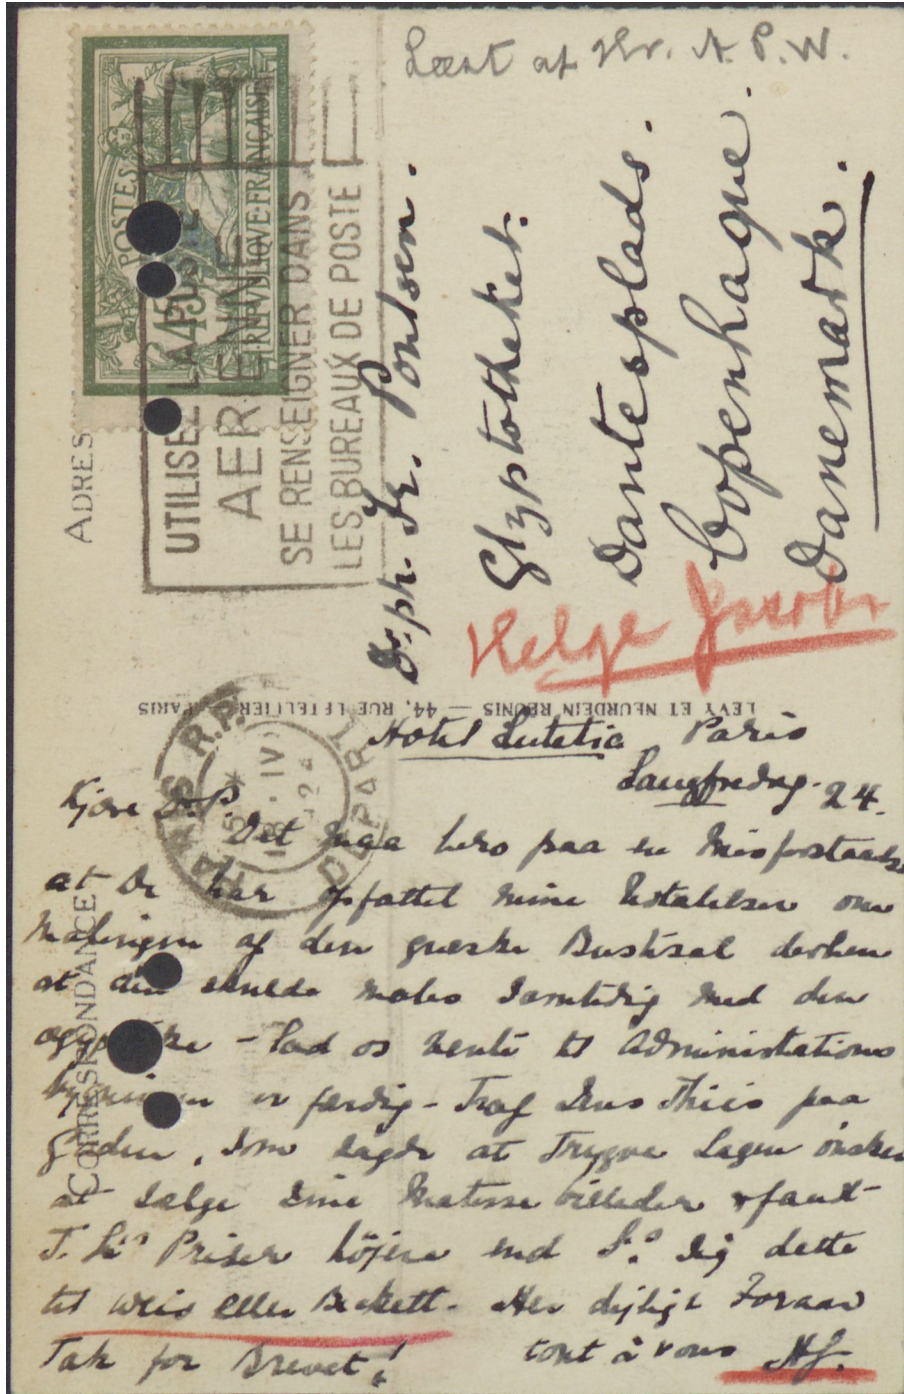 Læst af Hr. A. P. W.
ADRES
POSTES
45
REPVBLIQVE FRANÇAISE
UTILISEZ LA POSTE
AERIENNE
SE RENSEIGNER DANS
LES BUREAUX DE POSTE
Dr. ph. Fr. Poulsen.
Glyptotheket.
Dantesplads.
Copenhague.
Danemark.
Helge Jacobs
LEVY ET NEURDEIN REUNIS — 44, RUE LETELLIER, PARIS
PARIS R.P.
IV
DEPART
CORRESPONDANCE
Hotel Lutetia Paris
Langfredag. 24.
Kjære Dr. P.
Det maa bero paa en Misforstaaelse
at De har opfattet mine Udtalelser om
Malingen af den græske Bustsal derhen
at den skulde males samtidig med den
ægyptiske – Lad os vente til Administrations
bygningen er færdig – Traf Jens Thiis paa
Gaden, som sagde at Trygve Sagen ønsker
at sælge sine Matisse billeder & fandt
T. S.s Priser højere end S.s Sig dette
til Weis eller Beckett. Her dejligt Foraar
Tak for Brevet! tout à vous HJ.